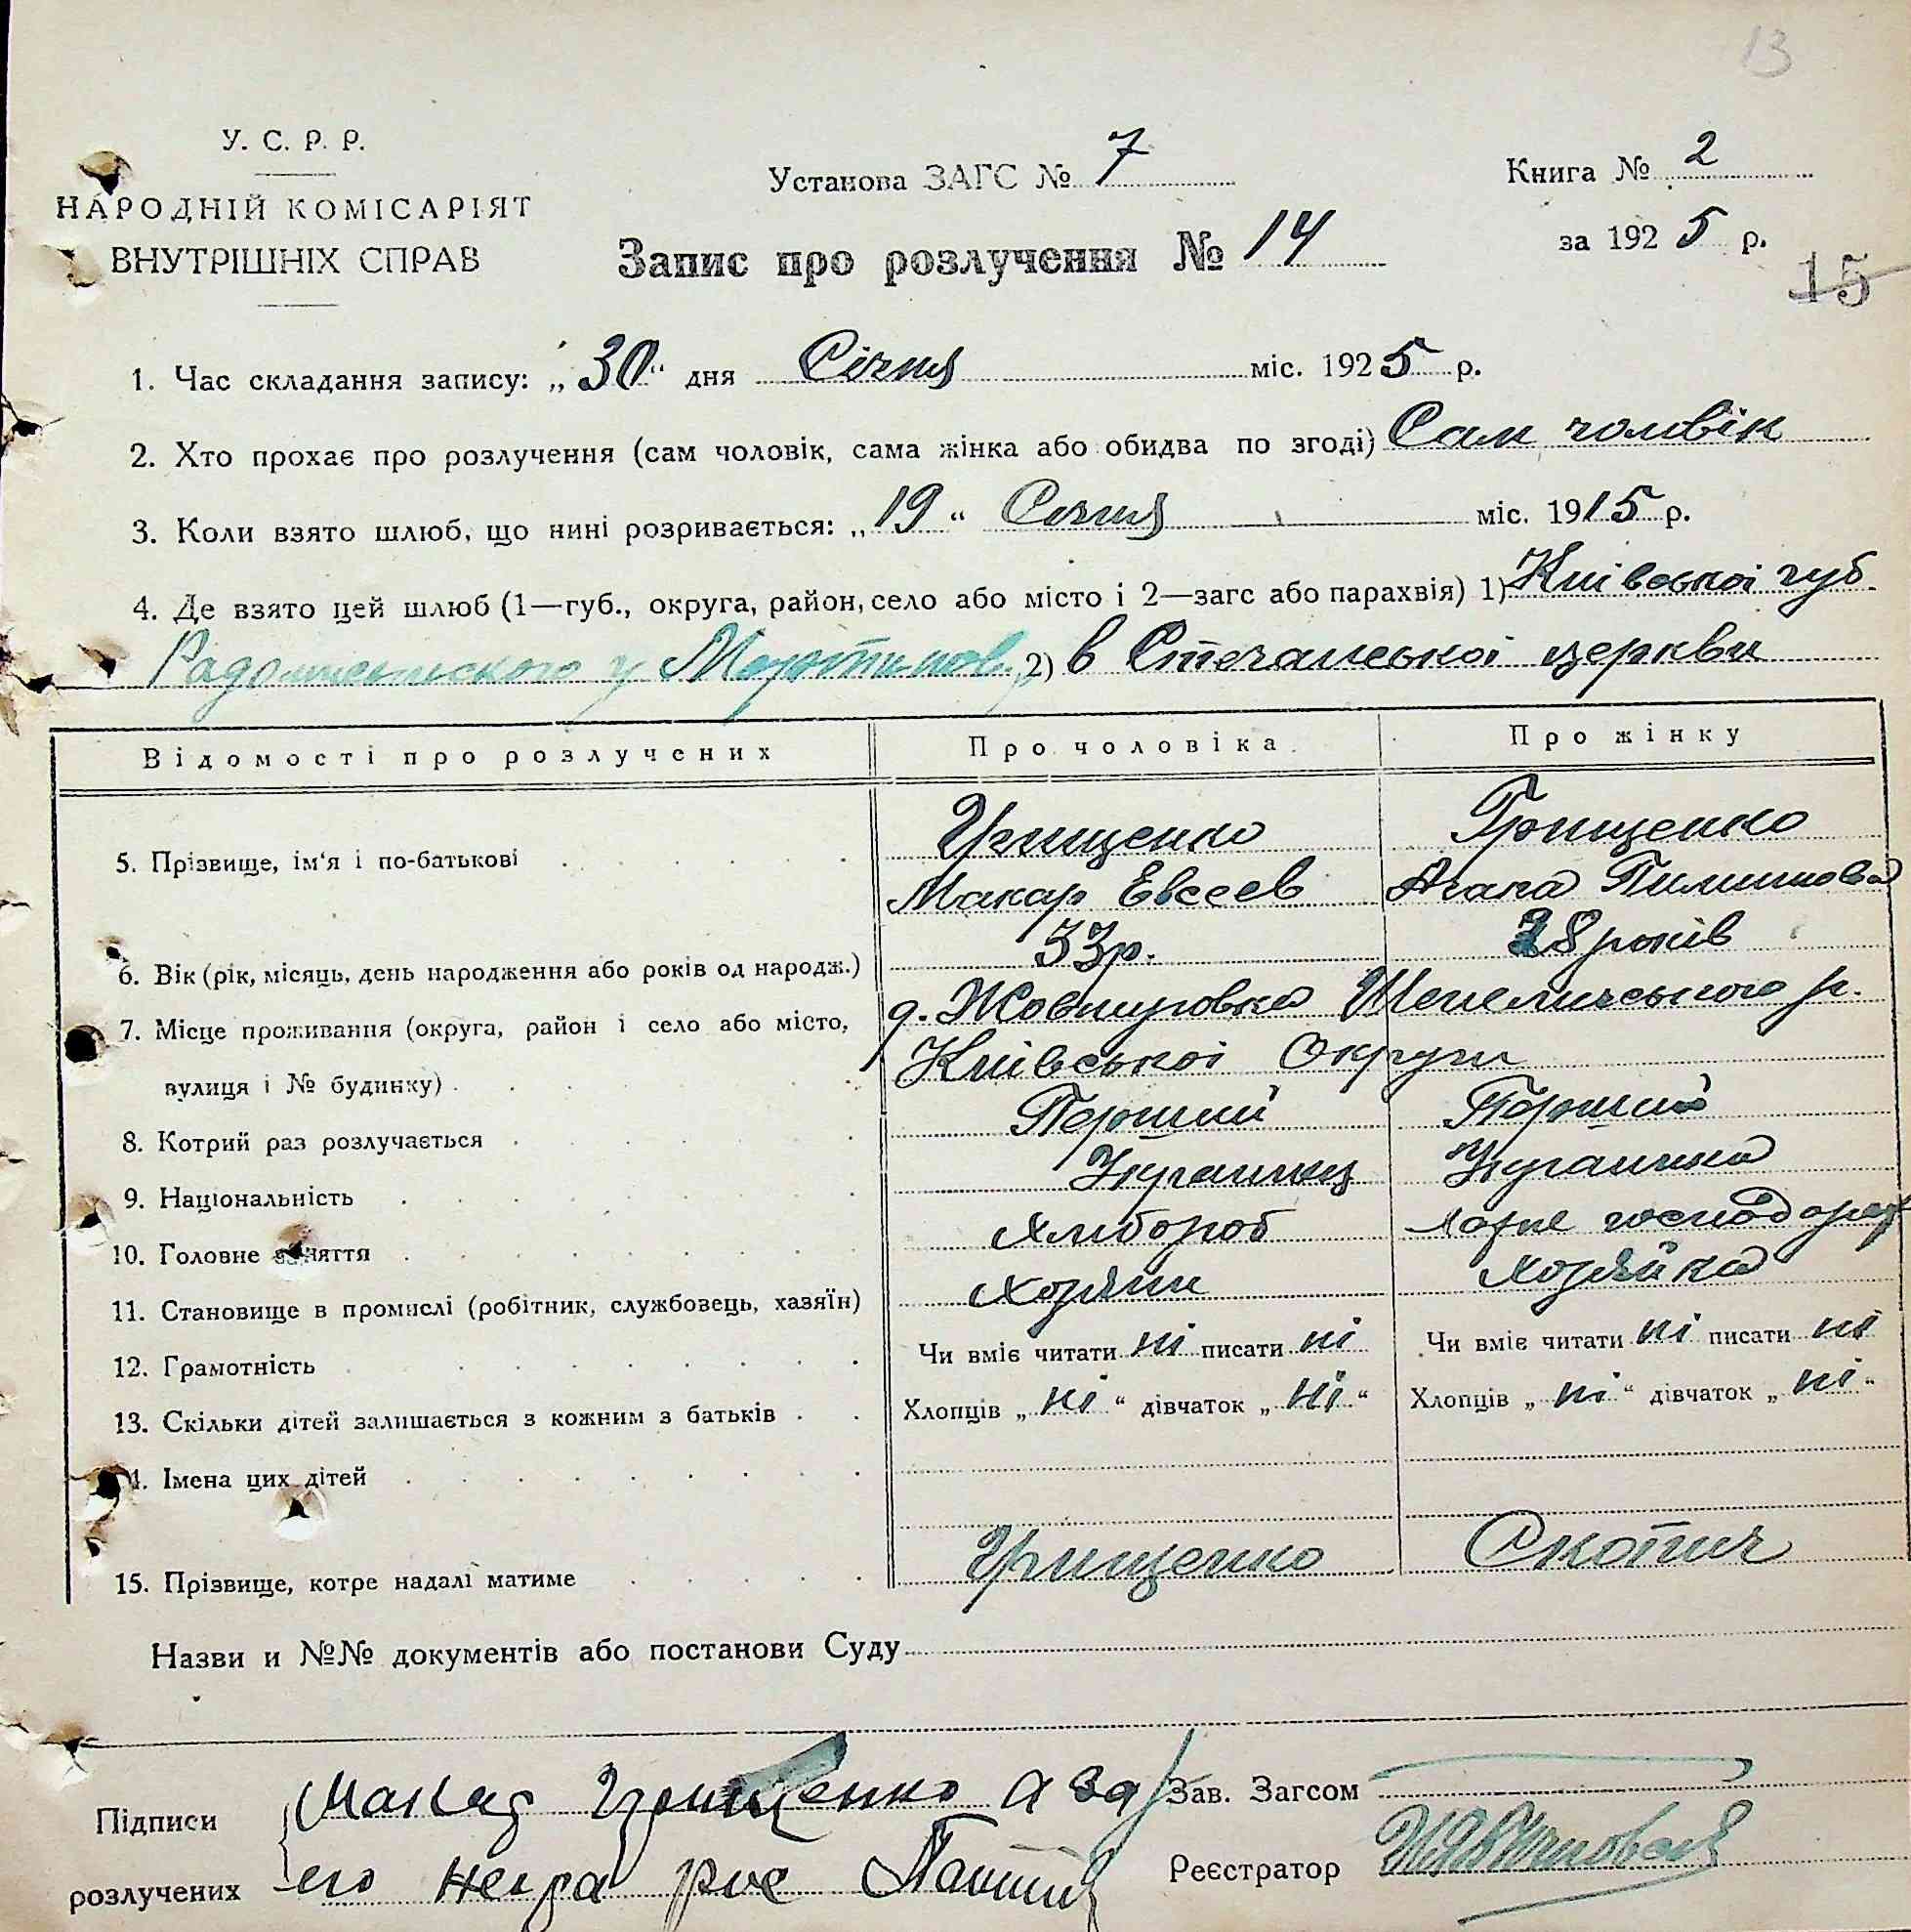 13
У. С. Р. Р.
НАРОДНІЙ КОМІСАРІЯТ
ВНУТРІШНІХ СПРАВ
Установа ЗАГС № 7
Книга № 2
Запис про розлучення № 14
за 1925 р.
15
1. Час складання запису: „30“ дня Січня міс. 1925 р.
2. Хто прохає про розлучення (сам чоловік, сама жінка або обидва по згоді) Сам чоловік
3. Коли взято шлюб, що нині розривається: „19“ Січня міс. 1915 р.
4. Де взято цей шлюб (1—губ., округа, район, село або місто і 2—загс або парахвія) 1) Київської губ
Радомисльского у 2) в Стечанської церкви
Відомості про розлучених Про чоловіка Про жінку
5. Прізвище, ім'я і по-батькові Грищенко Грищенко
Макар Евсеев Агапа
6. Вік (рік, місяць, день народження або років од народж.) 33р. 28 років
7. Місце проживання (округа, район і село або місто, вулиця і № будинку) Шепелическього р.
Київської Округи
8. Котрий раз розлучається Перший Перший
9. Національність Украинец Украинка
10. Головне заняття Хлибороб
11. Становище в промислі (робітник, службовець, хазяїн) Хозяин Хозяйка
12. Грамотність Чи вміє читати ні писати ні Чи вміє читати ні писати ні
13. Скільки дітей залишається з кожним з батьків Хлопців „ні“ дівчаток „ні“ Хлопців „ні“ дівчаток „ні“
14. Імена цих дітей
15. Прізвище, котре надалі матиме Грищенко Скопич
Назви и №№ документів або постанови Суду
Підписи розлучених Макар Грищенко а за
его
Зав. Загсом
Реєстратор